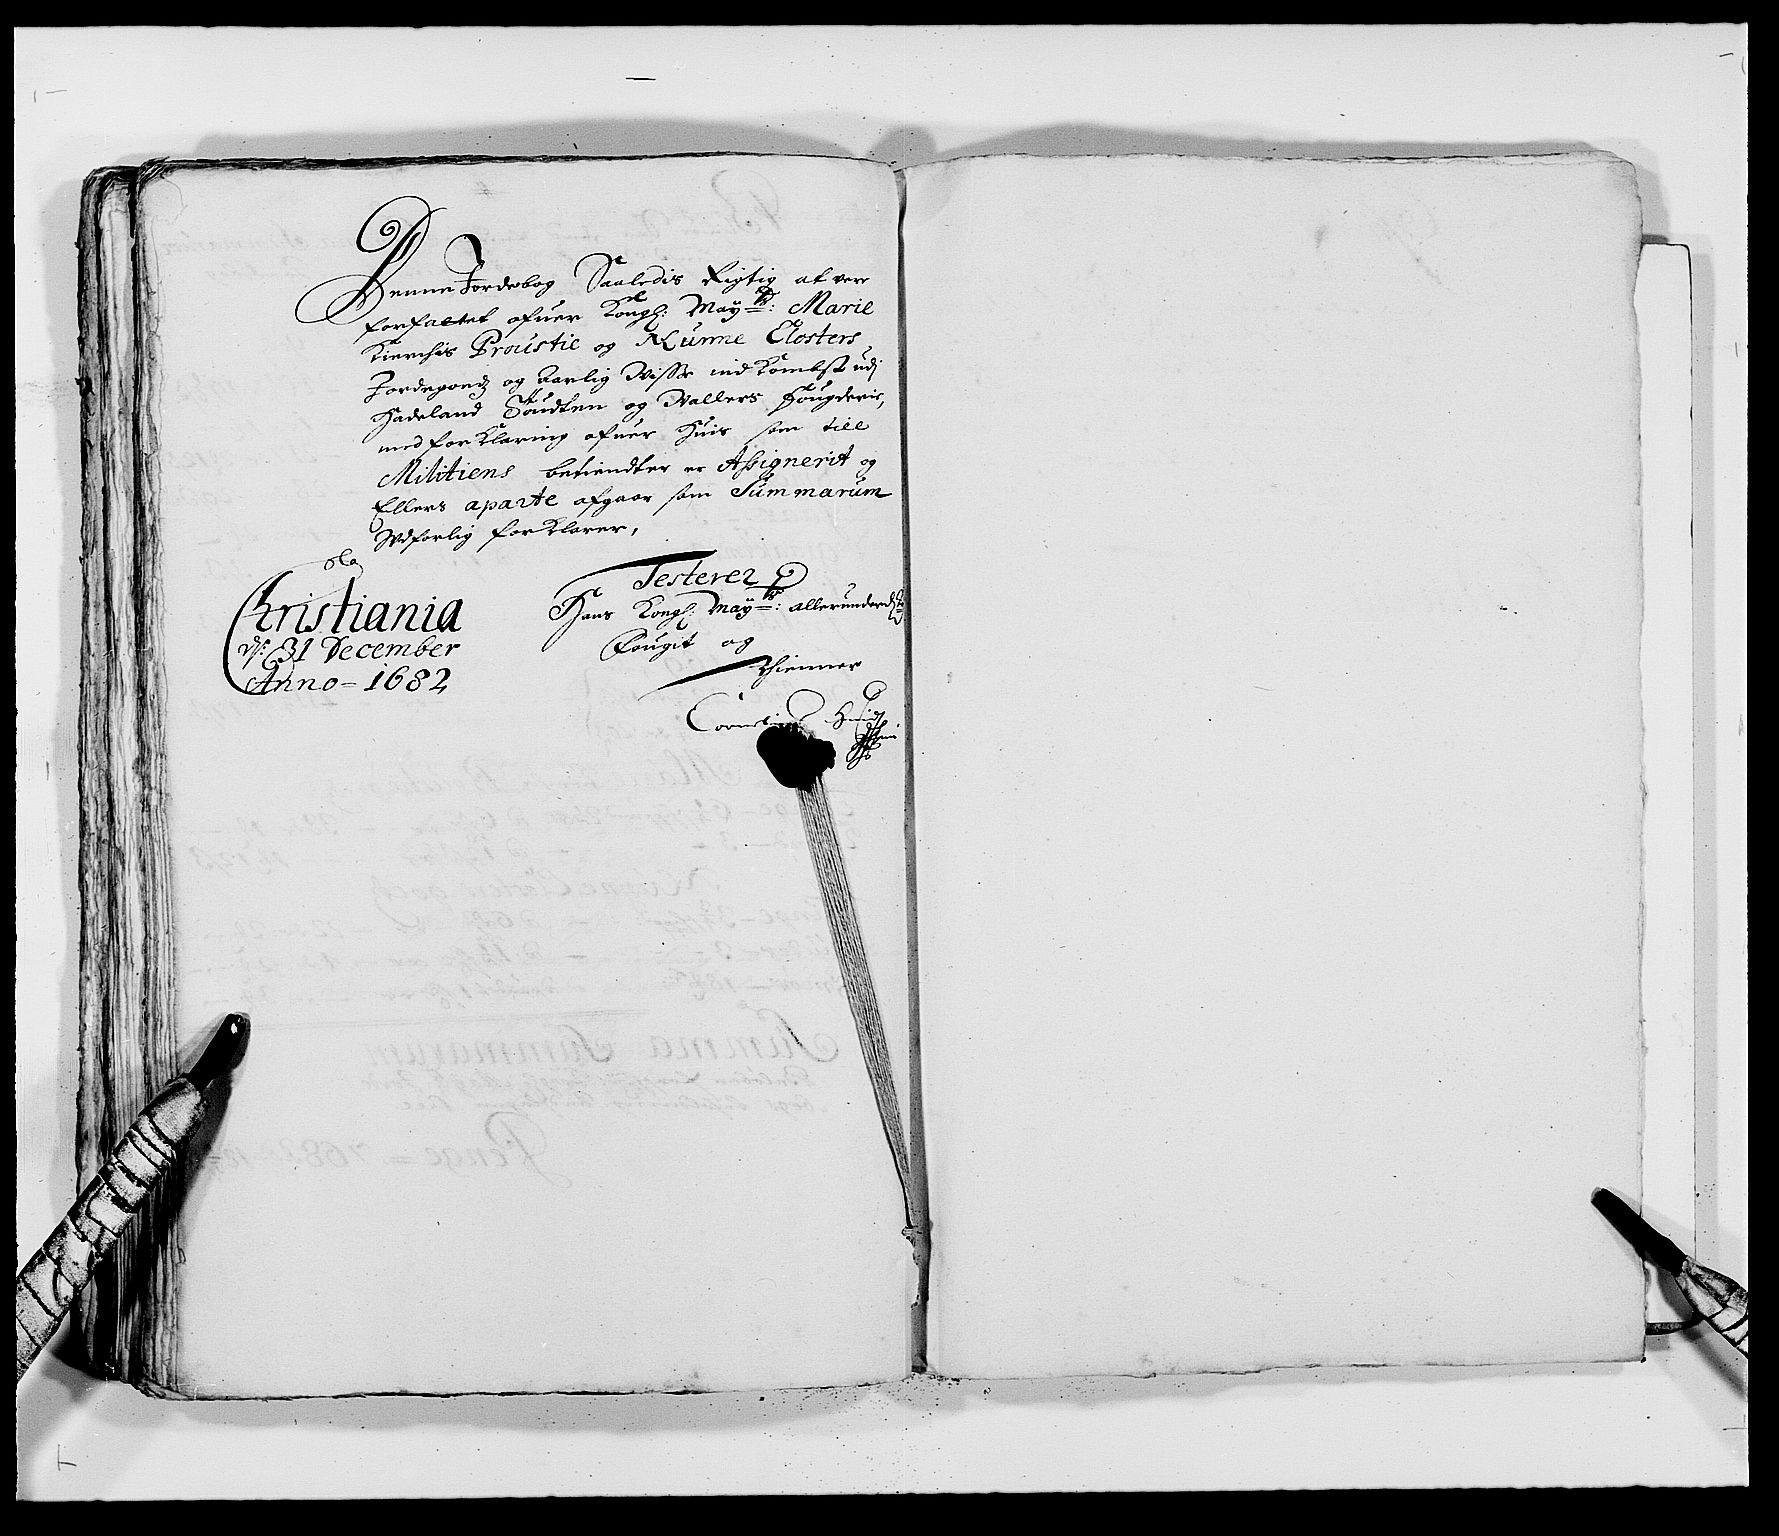 Denne Jordebog Saaledis Rigtig at vere
forfattet ofuer Kongl: May:ts: Marie
Kierchis Proustie og Nunne Closters
Jordegoedz og Aarlig Visse indKombst udj
Hadeland Toudten og Wallers fougderie,
med forKlaring ofuer huis som till
Militiens betiendter er Assignerit og
Ellers aparte afgaar som Summarum
Widforlig forKlarer,
Christiania
ds: 31 December
Anno = 1682
Testerer
Hans Kongl: May:ts: allerunderd
Fougit og
Thienner
Cornelius